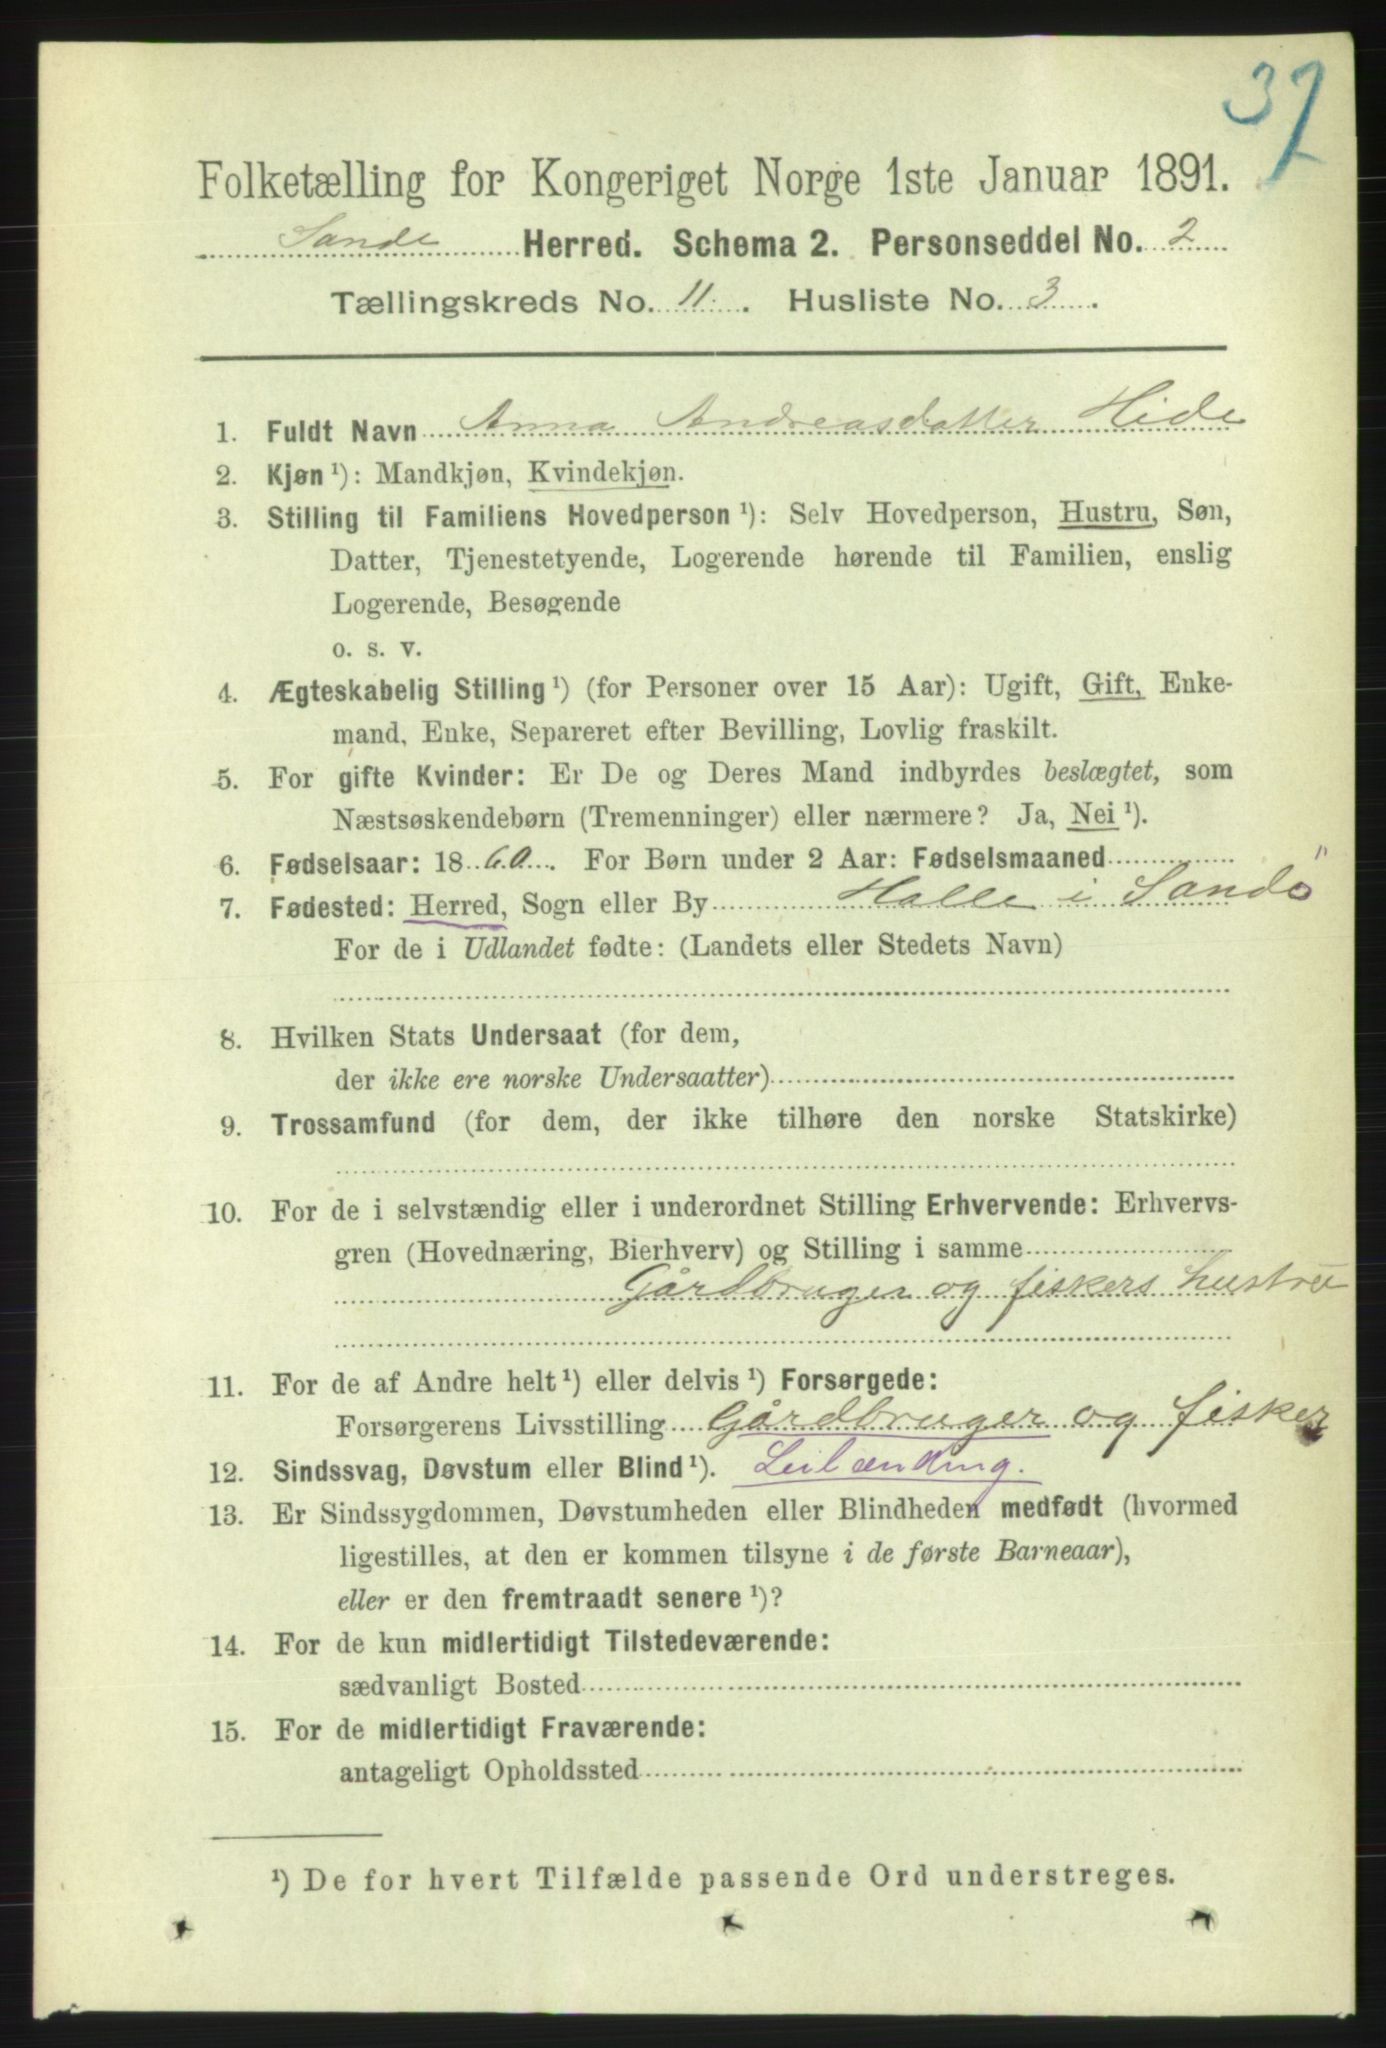 37
Folketælling for Kongeriget Norge 1ste Januar 1891.
Sande Herred. Schema 2. Personseddel No. 2
Tællingskreds No. 11. Husliste No. 3.
1. Fuldt Navn Anna Andreasdatter Hide
2. Kjøn¹): Mandkjøn, Kvindekjøn.
3. Stilling til Familiens Hovedperson¹): Selv Hovedperson, Hustru, Søn,
Datter, Tjenestetyende, Logerende hørende til Familien, enslig
Logerende, Besøgende
o. s. v.
4. Ægteskabelig Stilling¹) (for Personer over 15 Aar): Ugift, Gift, Enke-
mand, Enke, Separeret efter Bevilling, Lovlig fraskilt.
5. For gifte Kvinder: Er De og Deres Mand indbyrdes beslægtet, som
Næstsøskendebørn (Tremenninger) eller nærmere? Ja, Nei¹).
6. Fødselsaar: 1860. For Børn under 2 Aar: Fødselsmaaned
7. Fødested: Herred, Sogn eller By Halle i Sandö
For de i Udlandet fødte: (Landets eller Stedets Navn)
8. Hvilken Stats Undersaat (for dem,
der ikke ere norske Undersaatter)
9. Trossamfund (for dem, der ikke tilhøre den norske Statskirke)
10. For de i selvstændig eller i underordnet Stilling Erhvervende: Erhvervs-
gren (Hovednæring, Bierhverv) og Stilling i samme
Gårdbruger og fiskers hustru
11. For de af Andre helt¹) eller delvis¹) Forsørgede:
Forsørgerens Livsstilling Gårdbruger og fisker
12. Sindssvag, Døvstum eller Blind¹). Leilænding.
13. Er Sindssygdommen, Døvstumheden eller Blindheden medfødt (hvormed
ligestilles, at den er kommen tilsyne i de første Barneaar),
eller er den fremtraadt senere¹)?
14. For de kun midlertidigt Tilstedeværende:
sædvanligt Bosted
15. For de midlertidigt Fraværende:
antageligt Opholdssted
¹) De for hvert Tilfælde passende Ord understreges.